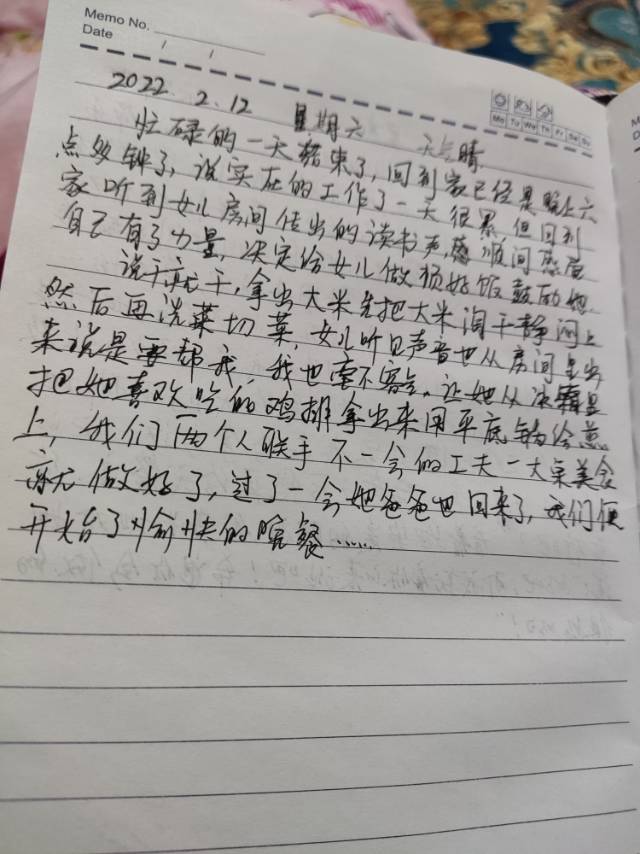 Memo No.
Date / /
Mo Tu We Th Fr Sa Su
2022 2.12 星期六 天气晴
忙碌的一天结束了,回到家已经是晚上六
点多钟了,说实在的工作了一天很累,但回到
家听到女儿房间传出的读书声,感顺间感觉
自己有了力量,决定给女儿做顿好饭鼓励她.
说干就干,拿出大米先把大米淘干静闷上
然后再洗菜切菜,女儿听见声音也从房间里出
来说是要帮我,我也毫不客气,让她从冰箱里
把她喜欢吃的鸡排拿出来用平底锅给煎
上,我们两个人联手不一会的工夫一大桌美食
就做好了,过了一会她爸爸也回来了,我们便
开始了愉快的晚餐......